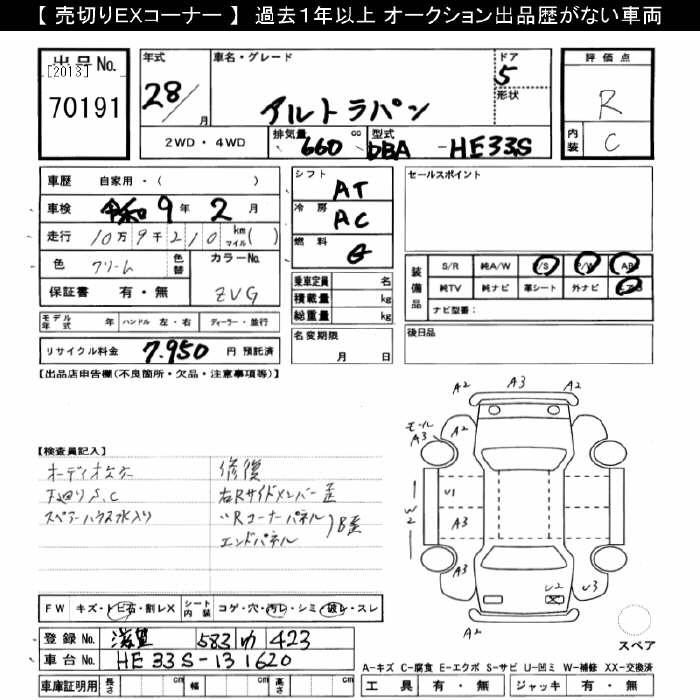 【 売切りEXコーナー 】 過去1年以上 オークション出品歴がない車両
出品No.
[2013]
70191
年式
28/
月
車名・グレード
アルトラパン
ドア
5
形状
評価点
R
内装
C
2WD・4WD
排気量
660
cc
型式
DBA
-HE33S
車歴 自家用・( )
車検 令和9年2月
走行 10万9千210 km マイル( )
色 クリーム
色替
カラーNo.
ZVG
保証書 有・無
シフト AT
冷房 AC
燃料 G
乗車定員 名
積載量 kg
総重量 kg
セールスポイント
装備品
S/R 純A/W P/S P/W AB
純TV 純ナビ 革シート 外ナビ
ナビ型番:
モデル年式 年 ハンドル 左・右 ディーラー・並行
名変期限
月 日
後日品
リサイクル料金 7.950 円 預託済
【出品店申告欄(不良箇所・欠品・注意事項等)】
A2 A3 A2
モール
A3
A2
A2
【検査員記入】
オーディオ欠
下廻りS.C
スペアーハウス水入り
修復
右Rサイドメンバー歪
〃Rコーナーパネル
エンドパネル
)B歪
U1
W2
A3
A3
U2
U3
A2
FW キズ・トビ石・割レX シート内装 コゲ・穴・汚レ・シミ・破レ・スレ
登録No. 滋賀 583 カ 423
車台No. HE33S-131620
車庫証明用 長さ cm 幅 cm 高さ cm
スペア
A-キズ C-腐食 E-エクボ S-サビ U-凹ミ W-補修 XX-交換済
工具 有・無 ジャッキ 有・無